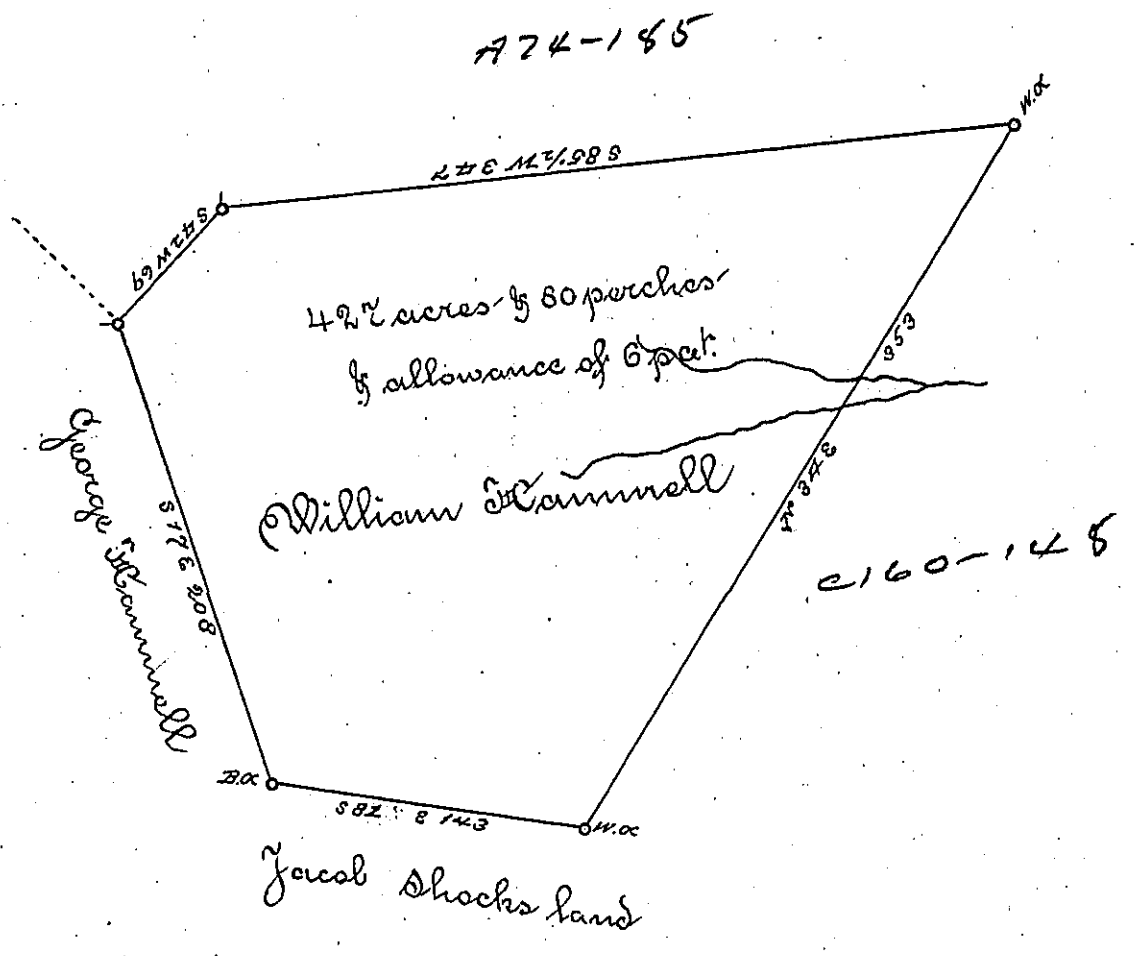 A74-185
W.O.
S 85½ W 347
S 42 W 69
427 acres & 80 perches
& allowance of 6 pct.
953
William Hammell
N 34 E
George Hammell
S 17 E 208
C160-148
B.O.
S 82 E 143
W.O.
Jacob Shocks land